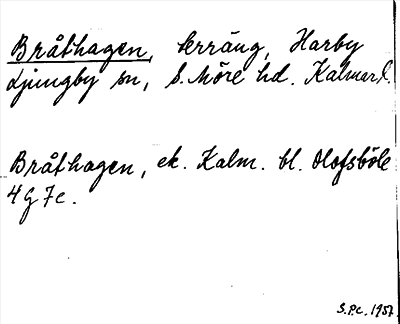 Bråthagen, terräng, Harby
Ljungby sn, S. Möre hd. Kalmar l.
Bråthagen, ek. Kalm. bl. Olofsböle
4 G 7 c.
S.P.C. 1957